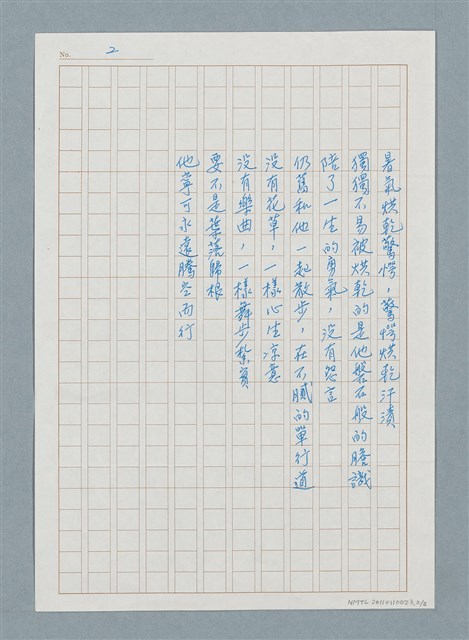 No. 2
暑氣烘乾驚愕,驚愕烘乾汗漬
獨獨不易被烘乾的是他磐石般的膽識
陪了一生的勇氣,沒有怨言
仍舊和他一起散步,在不膩的單行道
沒有花草,一樣心生涼意
沒有樂曲,一樣舞步紮實
要不是葉落歸根
他寧可永遠騰空而行